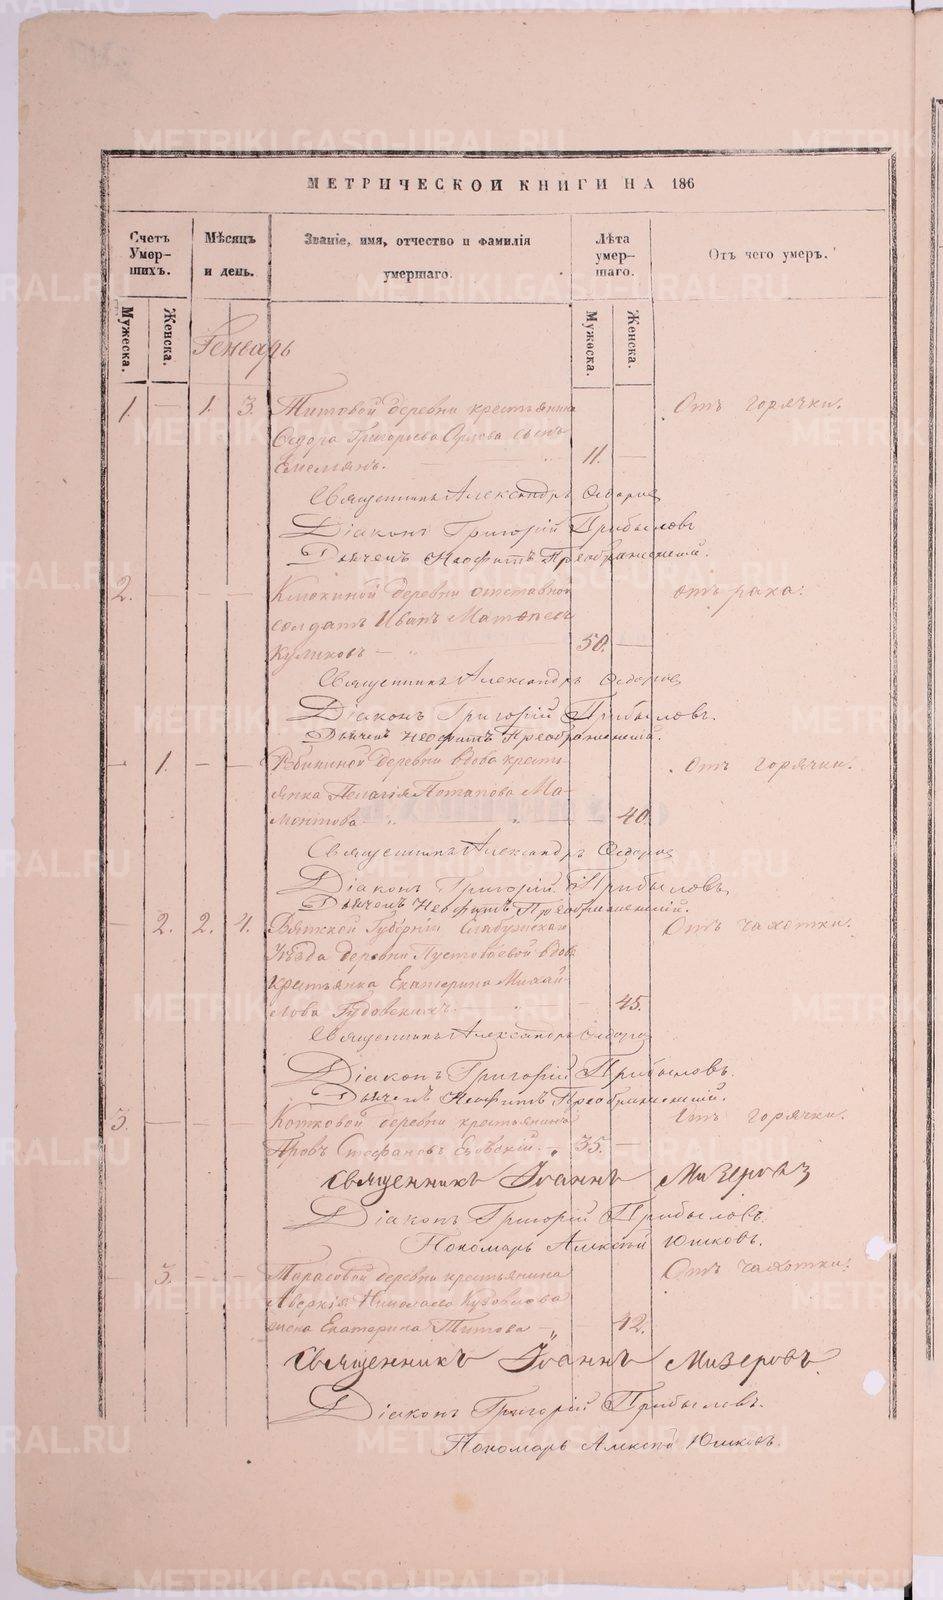 МЕТРИЧЕСКОЙ КНИГИ НА 186
Счетъ Умер-шихъ.
Мѣсяцъ и день.
Званіе, имя, отчество и фамилія умершаго.
Лѣта умер-шаго.
Отъ чего умеръ.
Мужеска.
Женска.
Мужеска.
Женска.
Генварь
1. — 1. 3. Титовой деревни крестьянина От горячки.
Ѳедора Григорьева Орлова сынъ
Емельянъ. — 11. —
Священникъ Александръ Ѳедоров
Діаконъ Григорій Прибыловъ
Дьячекъ Неофитъ Преображенскій.
2. — — — деревни отставной отъ рака.
солдатъ Иванъ
Куликовъ — " — 50. —
Священникъ Александръ Ѳедоров
Діаконъ Григорій Прибыловъ.
Дьячекъ Неофитъ Преображенскій.
— 1. — — деревни вдова кресть- Отъ горячки.
янка Пелагія Потапова Ма-
" " — 40.
Священникъ Александръ Ѳедоров
Діаконъ Григорій Прибыловъ
Дьячекъ Неофитъ Преображенскій.
— 2. 2. 4. Вятской Губерніи Елабужскаго Отъ чахотки.
Уѣзда деревни вдова
крестьянка Екатерина Михай-
лова — 45.
Священникъ Александръ Ѳедоров
Діаконъ Григорій Прибыловъ.
Дьячекъ Неофитъ Преображенскій.
3. — — — деревни крестьянинъ Отъ горячки.
Провъ Стефановъ " 35. —
Священникъ Іоаннъ Мизеровъ
Діаконъ Григорій Прибыловъ.
Пономарь Алексѣй Юшковъ.
— 3. — — Тарасовой деревни крестьянина Отъ чахотки.
Аверкія Николаева
жена Екатерина Титова — 42.
Священникъ Іоаннъ Мизеровъ.
Діаконъ Григорій Прибыловъ.
Пономарь Алексѣй Юшковъ.
METRIKI.GASO-URAL.RU